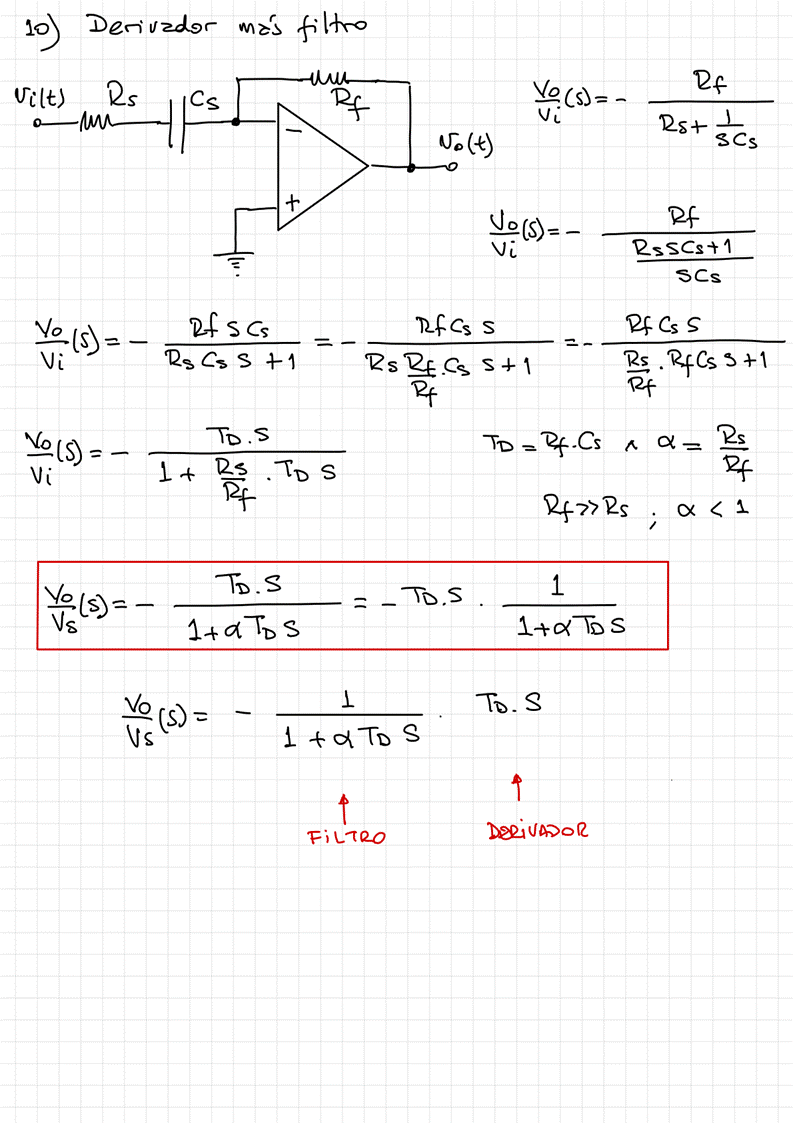 10) Derivador más filtro
Vi(t) Rs Cs Rf Vo(t)
Vo/Vi (s) = - Rf / (Rs + 1/(SCs))
- +
Vo/Vi (s) = - Rf / ((Rs S Cs + 1)/(SCs))
Vo/Vi (s) = - Rf S Cs / (Rs Cs S + 1) = - Rf Cs S / (Rs Rf/Rf . Cs S + 1) = - Rf Cs S / (Rs/Rf . Rf Cs S + 1)
Vo/Vi (s) = - TD . S / (1 + Rs/Rf . TD S)
TD = Rf . Cs ∧ α = Rs/Rf
Rf >> Rs ; α < 1
Vo/Vs (s) = - TD . S / (1 + α TD S) = - TD . S . 1 / (1 + α TD S)
Vo/Vs (s) = - 1 / (1 + α TD S) . TD . S
FILTRO DERIVADOR